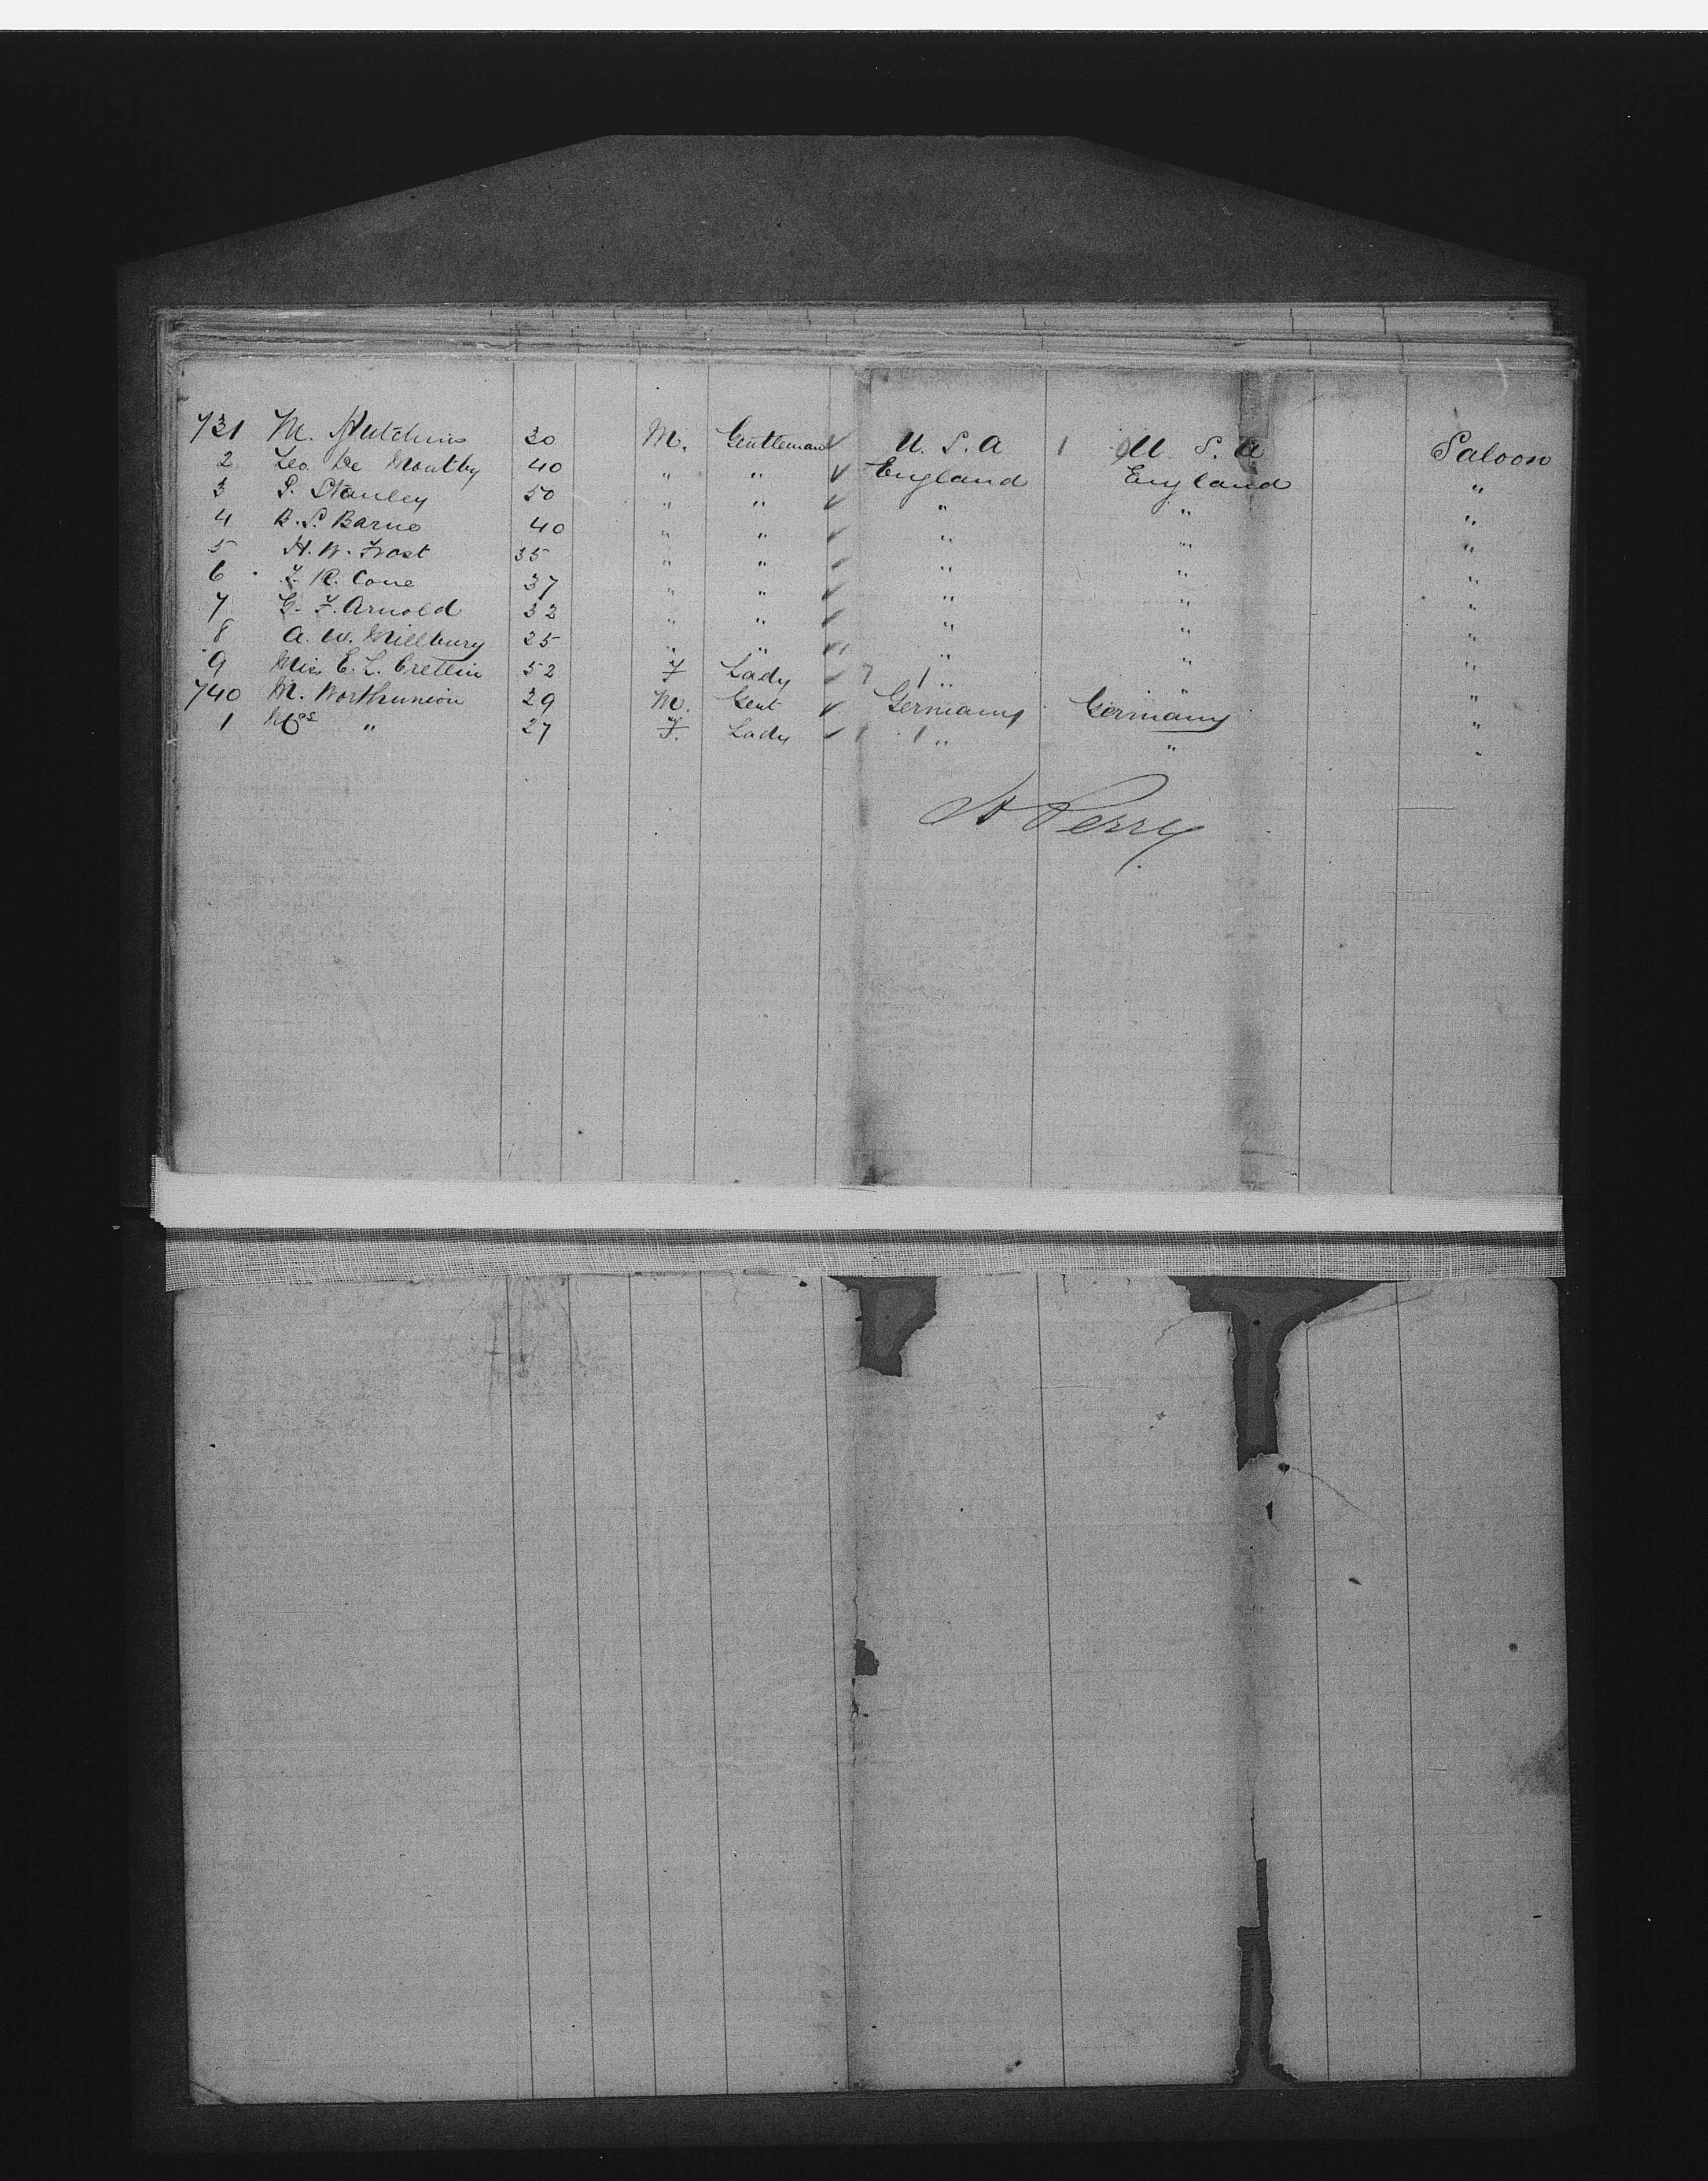 731 M. Hutchins 30 M. Gentleman U.S.A U.S.A Saloon
2 Leo De Montby 40 " " England England "
3 S. Stanley 50 " " " " "
4 B.S. Barns 40 " " " " "
5 H.W. Frost 35 " " " " "
6 R. Cone 37 " " " " "
7 F. Arnold 32 " " " " "
8 A.W. Millbury 25 " " " " "
9 Miss E.L. 52 F Lady " " "
740 M. 29 M. Gent Germany Germany "
1 Mrs " 27 F. Lady " " "
H Perry